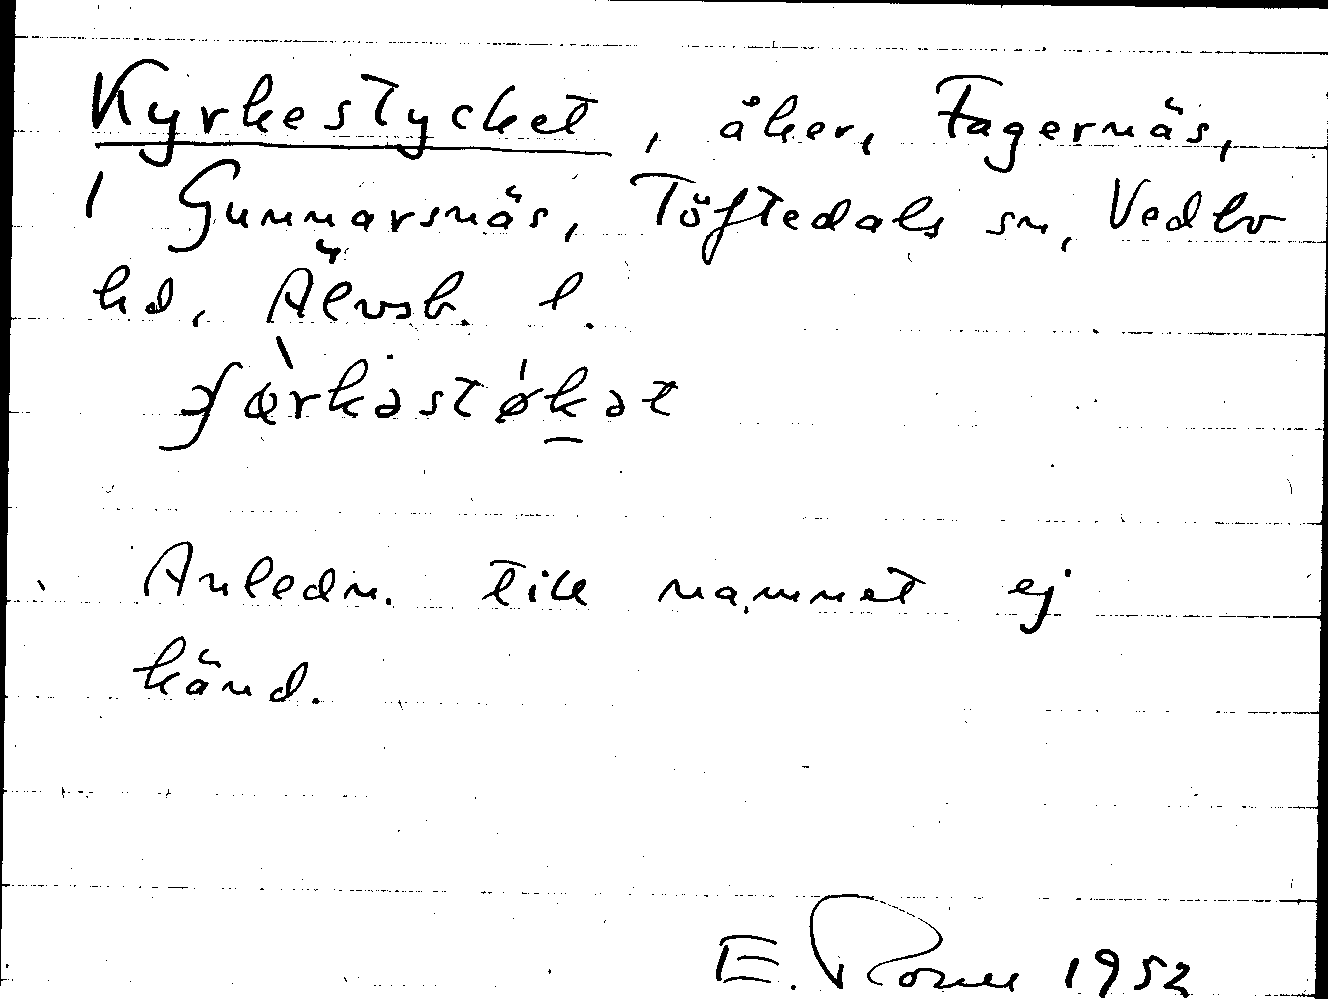 Kyrkestycket, åker, Fagernäs,
1 Gunnarsnäs, Töftedals sn, Vedbo
hd, Älvsb. l.
Anledn. till namnet ej
känd.
E. 1952